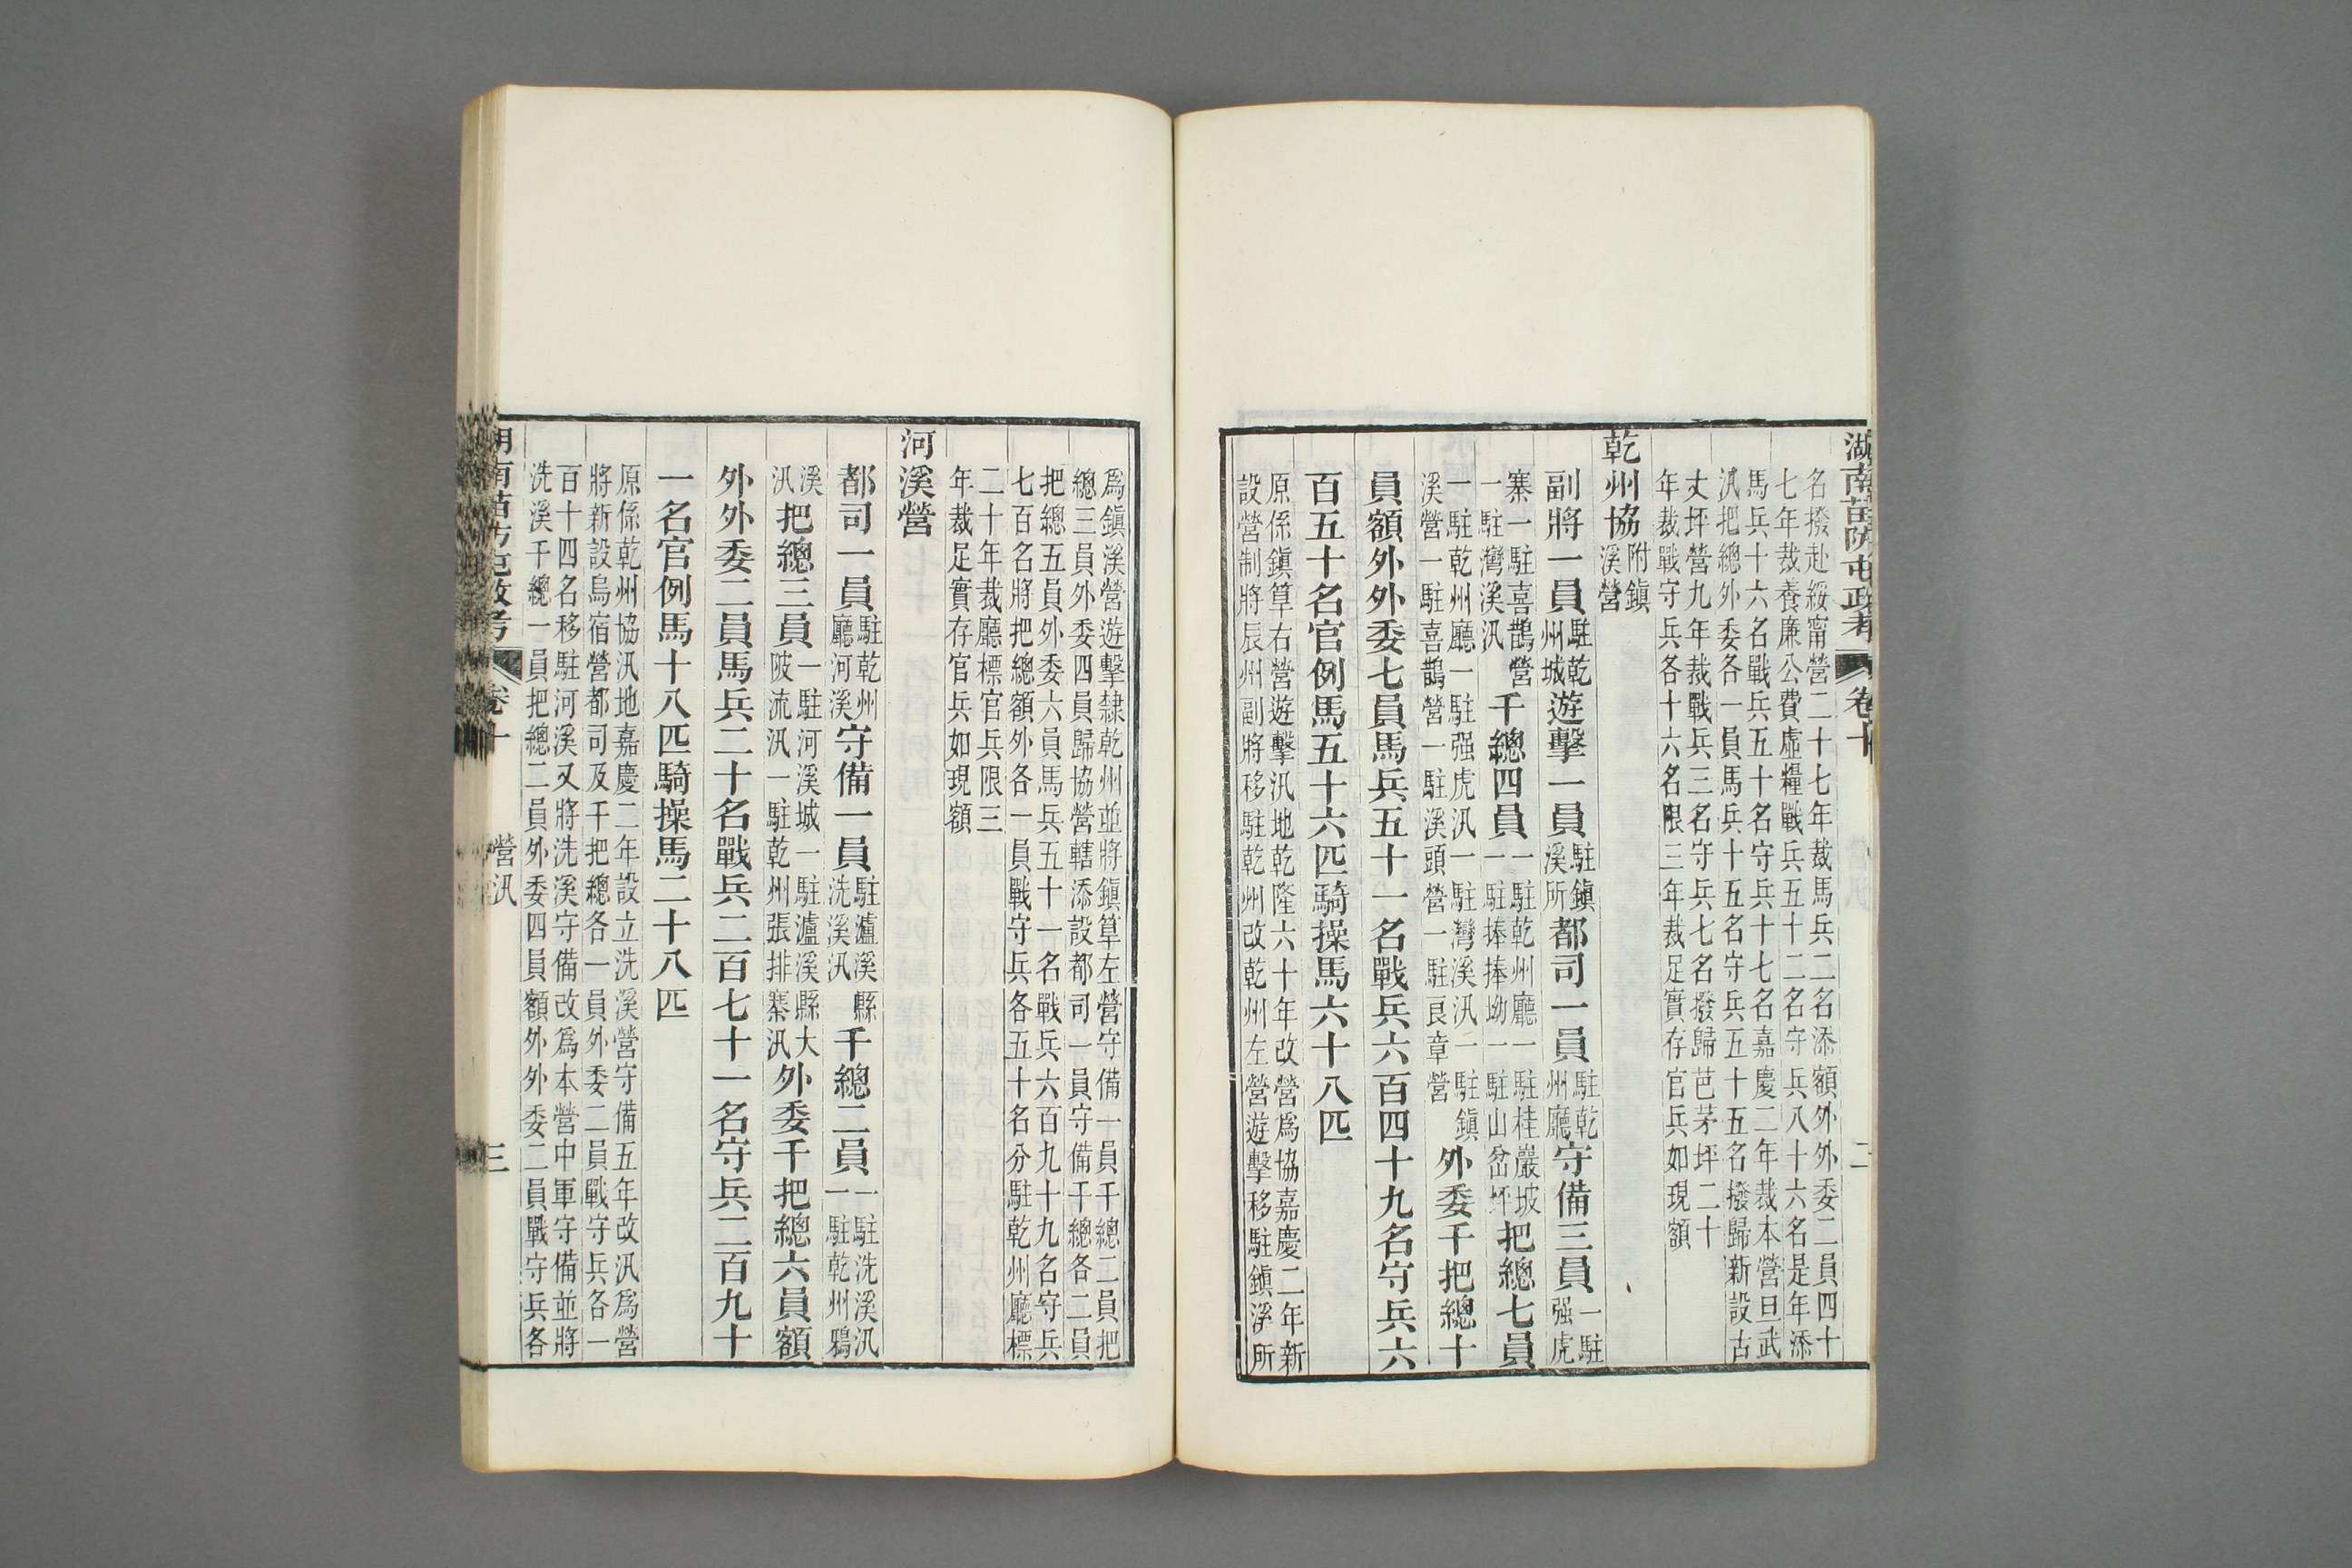 湖南苗防屯政考 卷十 二
名撥赴綏甯營二十七年裁馬兵二名添額外外委二員四十
七年裁養廉公費虛糧戰兵五十二名守兵八十六名是年添
馬兵十六名戰兵五十名守兵十七名嘉慶二年裁本營旦武
汛把總外委各一員馬兵十五名守兵五十五名撥歸新設古
丈坪營九年裁戰兵三名守兵七名撥歸芭茅坪二十
年裁戰守兵各十六名限三年裁足實存官兵如現額
乾州協附鎮溪營
副將一員駐乾州城遊擊一員駐鎮溪所都司一員駐乾州廳守備三員一駐强虎
寨一駐喜鵲營一駐灣溪汛千總四員一駐乾州廳一駐桂巖坡一駐捧捧坳一駐山岔坪把總七員
一駐乾州廳一駐强虎汛一駐灣溪汛一駐鎮溪營一駐喜鵲營一駐溪頭營一駐良章營外委千把總十
員額外外委七員馬兵五十一名戰兵六百四十九名守兵六
百五十名官例馬五十六匹騎操馬六十八匹
原係鎮筸右營遊擊汛地乾隆六十年改營爲協嘉慶二年新
設營制將辰州副將移駐乾州改乾州左營遊擊移駐鎮溪所
爲鎮溪營遊擊隸乾州並將鎮筸左營守備一員千總二員把
總三員外委四員歸協營轄添設都司一員守備千總各二員
把總五員外委六員馬兵五十一名戰兵六百九十九名守兵
七百名將把總額外各一員戰守兵各五十名分駐乾州廳標
二十年裁廳標官兵限三
年裁足實存官兵如現額
河溪營
都司一員駐乾州廳河溪守備一員駐瀘溪縣洗溪汛千總二員一駐洗溪汛一駐乾州鴉
溪汛把總三員一駐河溪城一駐瀘溪縣大陂流汛一駐乾州張排寨汛外委千把總六員額
外外委二員馬兵二十名戰兵二百七十一名守兵二百九十
一名官例馬十八匹騎操馬二十八匹
原係乾州協汛地嘉慶二年設立洗溪營守備五年改汛爲營
將新設烏宿營都司及千把總各一員外委二員戰守兵各一
百十四名移駐河溪又將洗溪守備改爲本營中軍守備並將
洗溪千總一員把總二員外委四員額外外委二員戰守兵各
湖南苗防屯政考 卷十 營汛 三